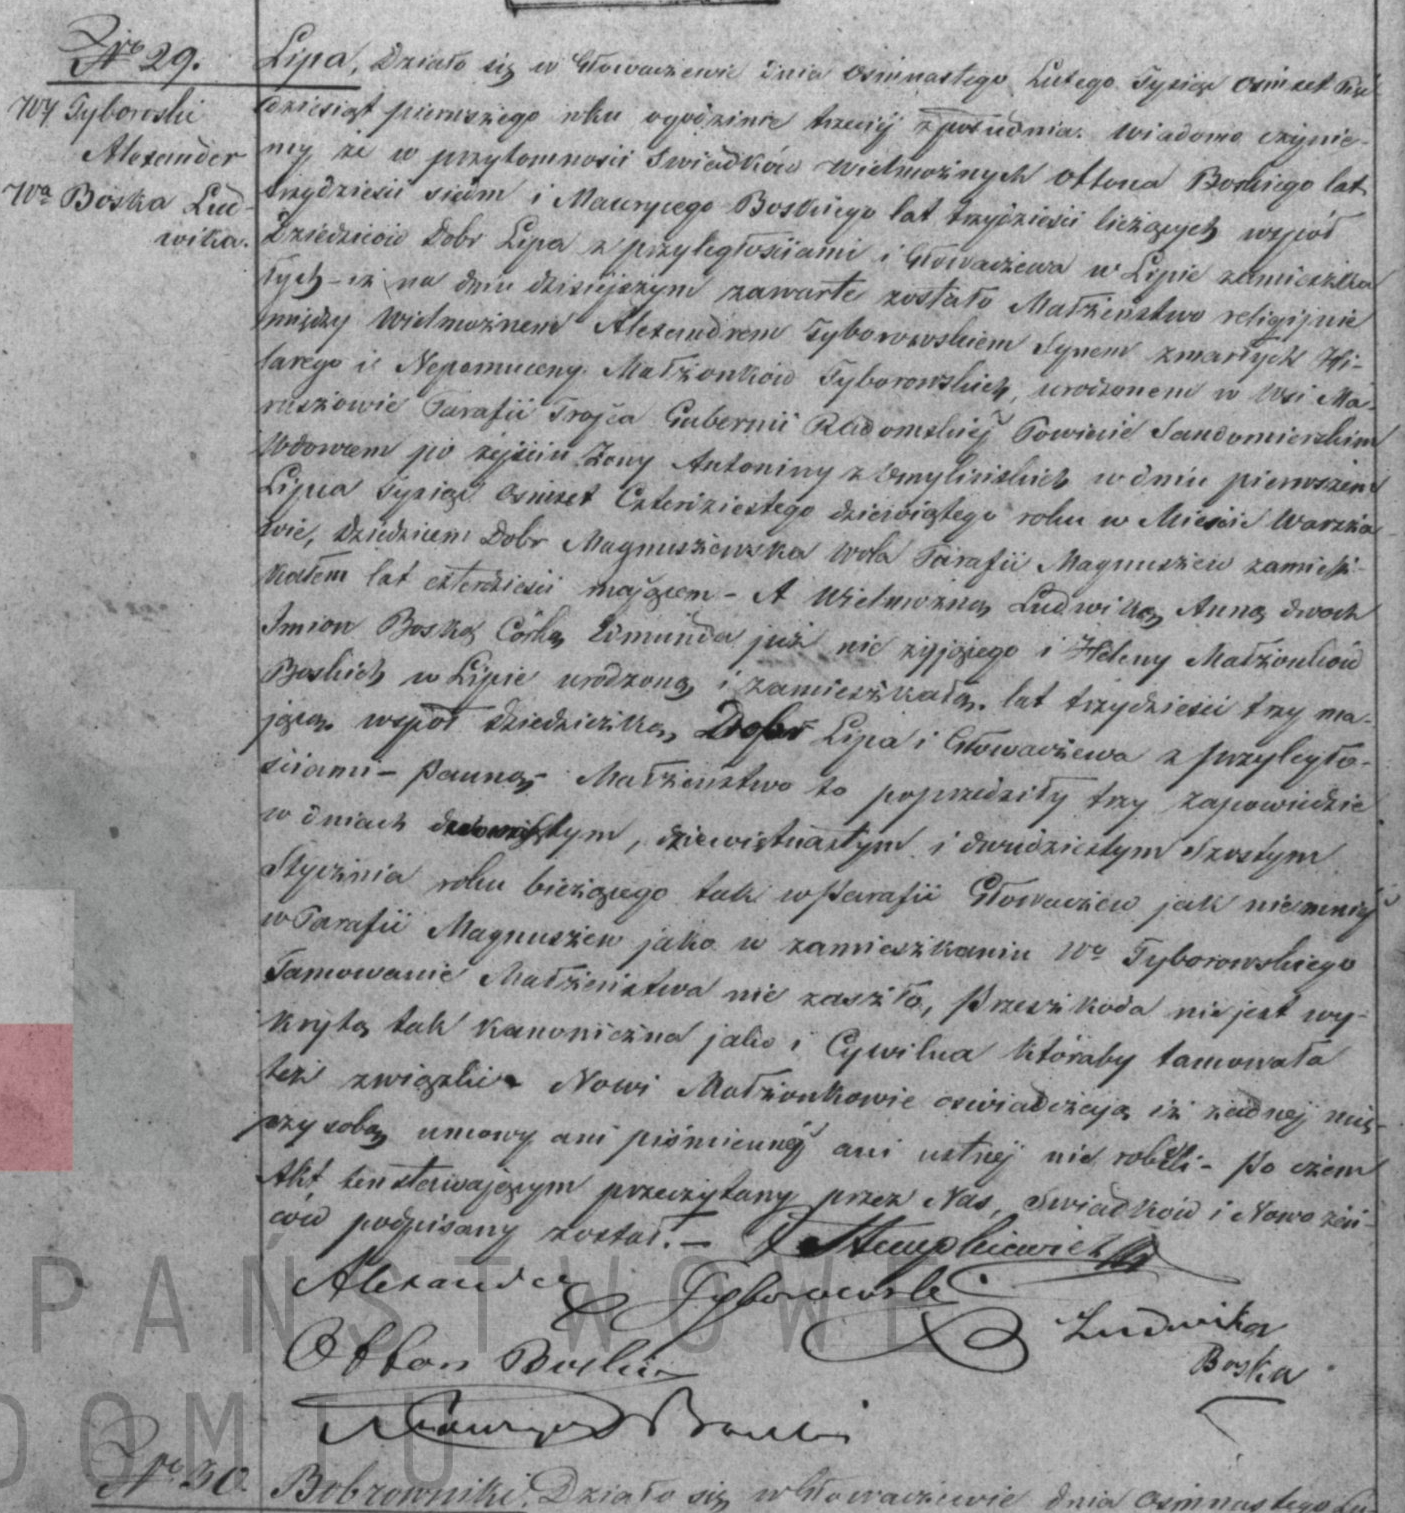 Nro 29.
Wy Tyborowski
Alexander
Wa Boska Lud-
wika.
Lipa, Działo się w Głowaczewie dnia osimnastego Lutego Tysiąc osimset Pię
dziesiąt pierwszego roku ogodzinie trzeciej z południa. Wiadomo czynie-
my, że w przytomności Swiadków Wielmożnych Ottona Boskiego lat
trzydzieści siedm i Maurycego Boskiego lat trzydzieści liczących wspoł
Dziedziców Dobr Lipa z przyległościami i Głowaczewa w Lipie zamieszka
łych – iż na dniu dzisiejszym zawarte zostało Małżeństwo religijnie
między Wielmożnem Alexandrem Tyborowskiem Synem zmarłych Hi-
larego i Nepomuceny Małżonków Tyborowskich, urodzonem w Wsi Ma-
ruszowie Parafii Trojca Gubernii Radomskiej Powiecie Sandomierskim
Wdowcem po zejściu Żony Antoniny z Omylińskich w dniu pierwszem
Lipca Tysiąc Osimset Czterdziestego dziewiątego roku w Mieście Warsza
wie, Dziedzicem Dobr Magnuszewska Wola Parafii Magnuszew zamiesz-
kałem lat czterdzieści mającem – A Wielmożną Ludwiką Anną dwoch
Imion Boską Córką Edmunda już nie żyjącego i Heleny Małżonków
Boskich w Lipie urodzoną i zamieszkałą, lat trzydzieści trzy ma-
jącą, wspoł dziedziczką Dobr Lipa i Głowaczewa z przyległo-
ściami – Panną – Małżeństwo to poprzedziły trzy zapowiedzie
w dniach dwonastym, dziewiętnastym i dwudziestym Szostym
Stycznia roku bieżącego tak w Parafii Głowaczew jak niemniej
w Parafii Magnuszew jako w zamieszkaniu Wo Tyborowskiego
Tamowanie Małżeństwa nie zaszło, Przeszkoda nie jest wy-
kryta tak kanoniczna jako i Cywilna któraby tamowała
też związki – Nowi Małżonkowie oswiadczają iż żadnej mię-
dzy sobą umowy ani piśmiennej ani ustnej nie robili – Po czem
Akt ten stawającym przeczytany przez Nas, Swiadków i Nowożeń-
ców podpisany został. –
Alexander Tyborowski
Ludwika
Boska
Otton Boski
Maurycy Boski
Nro 30.
Bobrowniki. Działo się w Głowaczewie dnia Osimnastego Lu-
PAŃSTWOWE
DOMIU